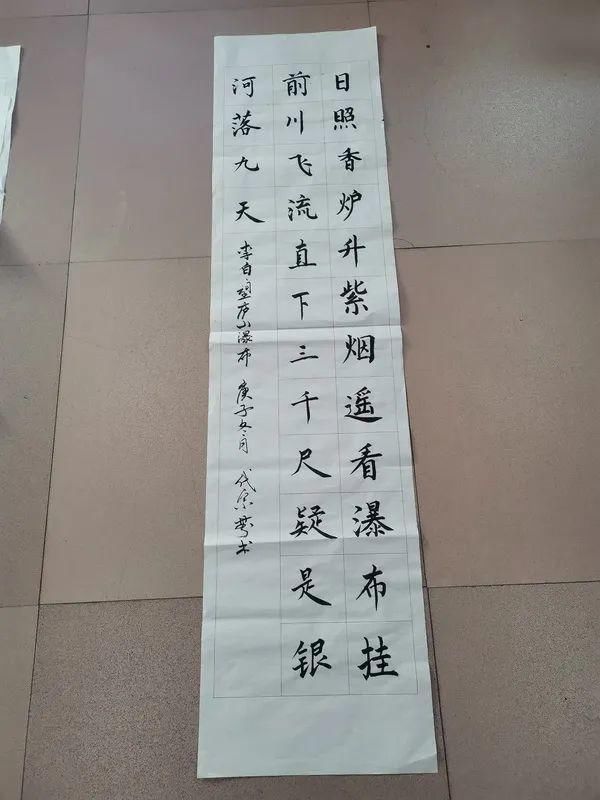 日照香炉升紫烟遥看瀑布挂
前川飞流直下三千尺疑是银
河落九天 李白望庐山瀑布 庚子冬月